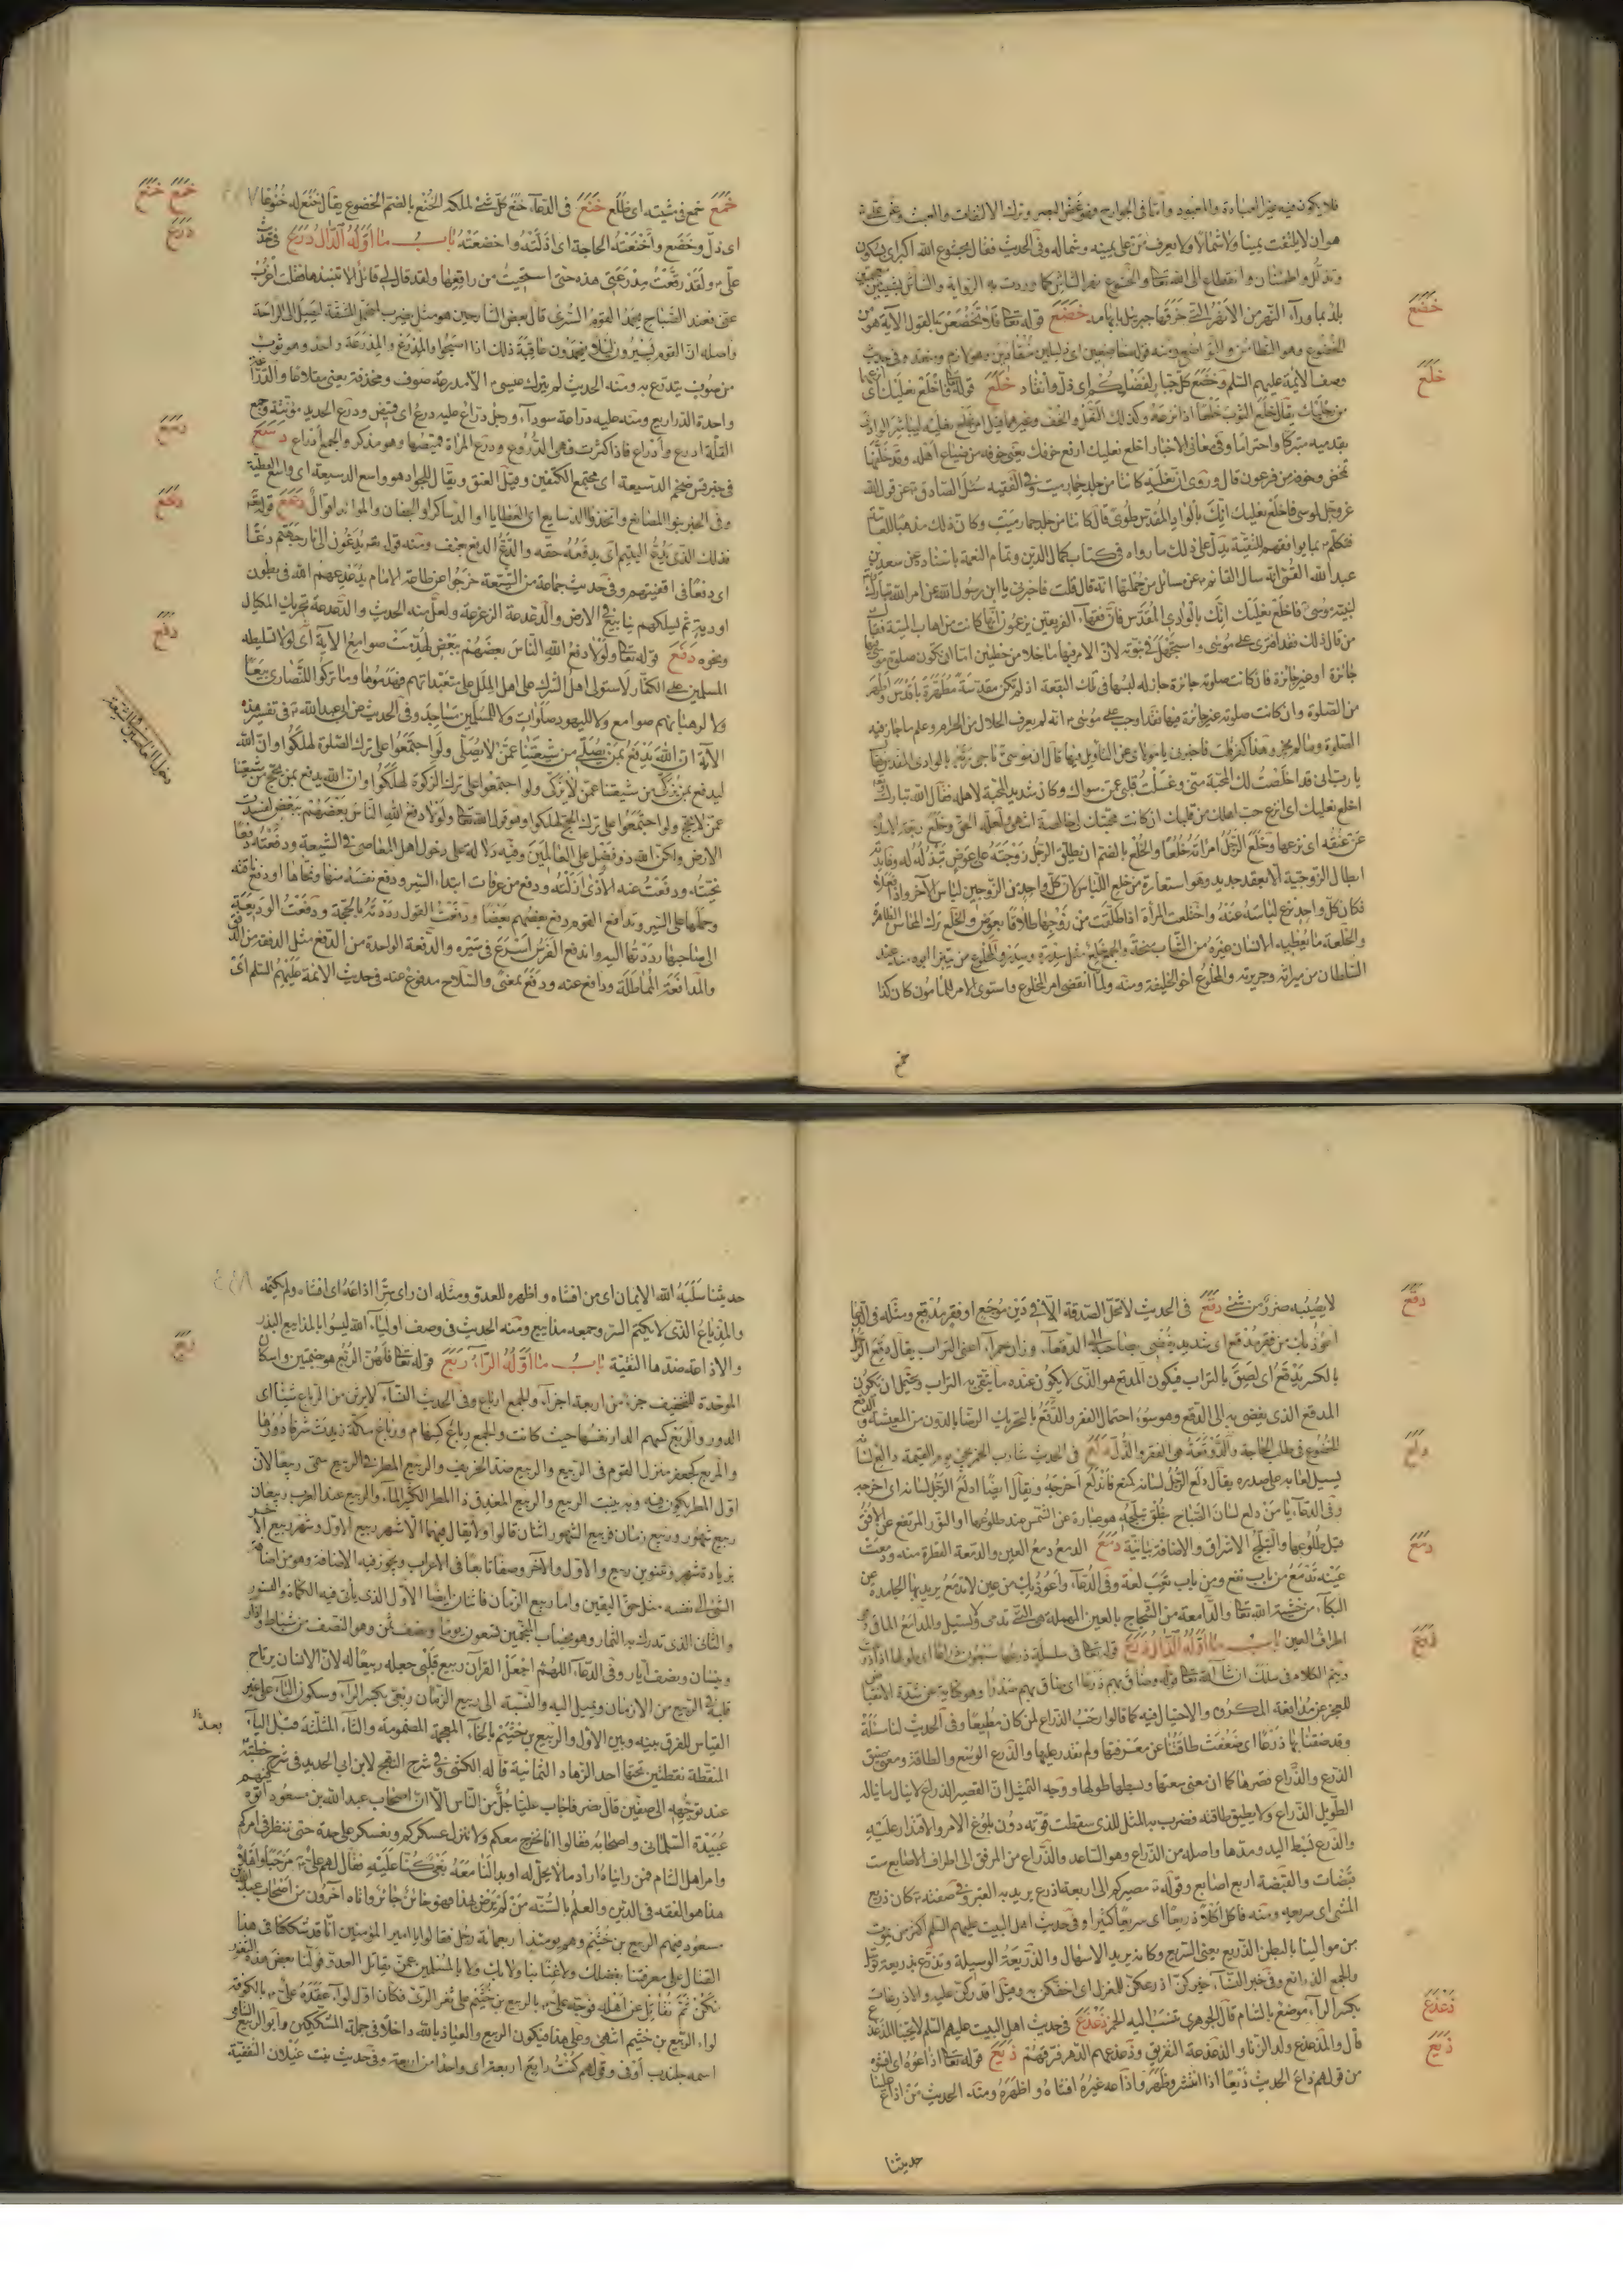 فلا يكون فيه غير العبادة والمعبود واما فى الجوارح فهو غض البصر وترك الالتفات والعبث وعن على
هو ان لا يلتفت يمينا ولا شمالا ولا يعرف من على يمينه وشماله وفى الحديث فقال بخشوع الله اكبر اى بسكون
وتذلل واطمئنان وانقطاع الى الله تعالى والخشوع
خضع
الخضوع وهو التطامن والتواضع ومنه قوله خاضعين اى ذليلين منقادين وهو لازم ومتعد وفى حديث
وصف الائمة عليهم السلم وخضع كل جبار لفضلكم اى ذل وانقاد خلع قوله تعالى فاخلع نعليك اى
خلع
من رجليك يقال خلع الثوب خلعا اذا نزعه وكذلك النعل والخف وغيرهما قيل امر بخلع نعليه ليباشر الوادى
بقدميه متبركا واحتراما وفى معانى الاخبار اخلع نعليك ارفع خوفك يعنى خوفه من ضياع اهله وقد خلفها
تمخض وخوفه من فرعون قال وروى ان نعليه كانتا من جلد حمار ميت وفى الفقيه سئل الصادق عن قول الله
عز وجل لموسى فاخلع نعليك انك بالواد المقدس طوى قال كانتا من جلد حمار ميت
فتكلم بما يوافقهم للتقية يدل على ذلك ما رواه فى كتاب كمال الدين وتمام النعمة باسناده عن سعد بن
عبد الله القمى انه سال القائم عن مسائل من جملتها انه قال قلت فاخبرنى يا ابن رسول الله عن امر الله تبارك
لنبيه موسى فاخلع نعليك انك بالوادى المقدس فان فقهاء الفريقين يزعمون انها كانت من اهاب الميتة فقال
من قال ذلك فقد افترى على موسى واستجهله فى نبوته لان الامر فيها ما خلا من خطيئتين اما ان تكون صلوة موسى
جائزة او غير جائزة فان كانت صلوته جائزة جاز له لبسها فى تلك البقعة اذ لم تكن مقدسة مطهرة باقدس واطهر
من الصلوة وان كانت صلوته غير جائزة فيها فقد اوجب على موسى انه لم يعرف الحلال من الحرام وعلم ما جاز فيه
الصلوة وما لم يجز وهذا كفر قلت فاخبرنى يا مولاى عن التاويل فيها قال ان موسى ناجى ربه بالوادى المقدس فقال
يا رب انى قد اخلصت لك المحبة منى وغسلت قلبى عمن سواك وكان شديد المحبة لاهله فقال الله تبارك
اخلع نعليك اى انزع حب اهلك من قلبك ان كانت محبتك لى خالصة انتهى
عن عنقه اى نزعها وخلع الرجل امراته خلعا والخلع بالضم ان يطلق الرجل زوجته على عوض تبذله له وفائدته
ابطال الزوجية الا بعقد جديد وهو استعارة من خلع اللباس لان كل واحد من الزوجين لباس للآخر واذا فعلا
فكان كل واحد نزع لباسه عنه واختلعت المرأة اذا طلقت من زوجها طلاقا بعوض
والخلعة ما يعطيه الانسان غيره من الثياب منحة والجمع خلع مثل سدرة وسدر
السلطان من ميراثه وجريرته والمخلوع اخو الخليفة ومنه ولما انقضى امر المخلوع واستوى الامر للمامون كان كذا
خمع
خمع خنع
خمع خمع فى مشيته اى ظلع خنع فى الدعاء خنع كل شئ لملكه الخنع بالضم الخضوع يقال خنع له خنوعا
درع
اى ذل وخضع واخنعته الحاجة اى اذلته واخضعته باب ما اوله الدال درع فى حديث
على ولقد رقعت مدرعتى هذه حتى استحييت من راقعها ولقد قال لى قائل الا تنبذها فقلت اغرب
عنى فعند الصباح يحمد القوم السرى قال بعض الشارحين هو مثل يضرب لمحتمل المشقة ليصل الى الراحة
واصله ان القوم يسيرون ليلا فيحمدون عاقبة ذلك اذا اصبحوا والمدرع والمدرعة واحد وهو ثوب
من صوف يتدرع به ومنه الحديث لم يترك عيسى الا مدرعة صوف ومخذفة يعنى مقلاعا
واحدة الدراريع ومنه عليه دراعة سوداء ورجل دارع عليه درع اى قميص ودرع الحديد مؤنثة وجمع
القلة ادرع وادراع فاذا كثرت فهى الدروع ودرع المرأة قميصها وهو مذكر والجمع ادراع دسع
دسع
ضخم الدسيعة اى مجتمع الكتفين وقيل العنق ويقال للجواد هو واسع الدسيعة اى واسع العطية
وفى الخبر بنوا المصانع واتخذوا الدسايع اى العطايا او الدساكر او الجفان والموائد اقوال دعع قوله تعالى
دعع
فذلك الذى يدع اليتيم اى يدفعه حقه والدع الدفع بعنف ومنه قوله يوم يدعون الى نار جهنم دعا
اى دفعا فى اقفيتهم وفى حديث جماعة من الشيعة خرجوا عن طاعة الامام يدعدعهم الله فى بطون
اودية ثم يسلكهم ينابيع فى الارض والدعدعة الزعزعة ولعل منه الحديث والدعدعة تحريك المكيال
ونحوه دفع قوله تعالى ولولا دفع الله الناس بعضهم ببعض لهدمت صوامع الآية اى لولا تسليطه
دفع
المسلمين على الكفار لاستولى اهل الشرك على اهل الملل على متعبداتهم فهدموها وما تركوا للنصارى بيعا
ولا لرهبانهم صوامع ولا لليهود صلوات ولا للمسلمين مساجد وفى الحديث عن ابى عبد الله فى تفسير هذه
الآية ان الله يدفع بمن يصلى من شيعتنا عمن لا يصلى ولو اجتمعوا على ترك الصلوة لهلكوا وان الله
ليدفع بمن يزكى من شيعتنا عمن لا يزكى ولو اجتمعوا على ترك الزكوة لهلكوا وان الله يدفع بمن يحج من شيعتنا
عمن لا يحج ولو اجتمعوا على ترك الحج لهلكوا وهو قول الله تعالى ولولا دفع الله الناس بعضهم ببعض لفسدت
الارض ولكن الله ذو فضل على العالمين وفيه دلالة على دخول اهل المعاصى فى الشيعة ودفعته دفعا
دخول العاصين فى الشيعة
نحيته ودفعت عنه الاذى ازلته ودفع من عرفات ابتداء السير ودفع نفسه منها ونحاها او دفع ناقته
وحملها على السير وتدافع القوم دفع بعضهم بعضا ودفعت القول رددته بالحجة ودفعت الوديعة
الى صاحبها رددتها اليه واندفع الفرس اسرع فى سيره والدفعة الواحدة من الدفع مثل الدفقة من الدفق
والمدافعة المماطلة ودافع عنه ودفع بمعنى والسلاح مدفوع عنه فى حديث الائمة عليهم السلم اى
لا يصيبه ضرر من شئ دقع فى الحديث لا تحل الصدقة الا فى دين موجع او فقر مدقع ومثله فى الدعاء
دقع
اعوذ بك من فقر مدقع اى شديد يفضى بصاحبه الى الدقعاء وزان حمراء اعنى التراب يقال دقع الرجل
بالكسر يدقع اى لصق بالتراب فيكون المدقع هو الذى لا يكون عنده ما يتقى به التراب ويحتمل ان يكون
المدقع الذى يفضى به الى الدقع وهو سوء احتمال الفقر والدقع بالتحريك الرضا بالدون من المعيشة
الخضوع فى طلب الحاجة والدوقعة هى الفقر والذل دلع فى الحديث شارب الخمر يجئ يوم القيمة
دلع
يسيل لعابه على صدره يقال دلع الرجل لسانه كمنع فاندلع اخرجه ويقال ايضا ادلع الرجل لسانه اى اخرجه
وفى الدعاء يا من دلع لسان الصباح بنطق تبلجه هو عبارة عن الشمس عند طلوعها او النور المرتفع عن الافق
قبل طلوعها والتبلج الاشراق والاضافة بيانية دمع الدمع دمع العين والدمعة القطرة منه ودمعت
دمع
عينه تدمع من باب نفع ومن باب تعب لغة وفى الدعاء واعوذ بك من عين لا تدمع يريد بها الجامدة عن
البكاء من خشية الله تعالى والدامعة من الشجاج بالعين المهملة هى التى تدمى ولا تسيل والمدامع المآقى
اطراف العين باب ما اوله الذال ذرع قوله تعالى فى سلسلة ذرعها سبعون ذراعا اى طولها اذا ذرعت
ذرع
وتيم الكلام فى سلك ان شاء الله تعالى قوله وضاق بهم ذرعا اى ضاق بهم صدرا وهو كناية عن شدة الانقباض
للعجز عن مدافعة المكروه والاحتيال فيه كما قالوا رحب الذراع لمن كان مطيقا وفى الحديث لنا مسئلة
وقد ضقنا بها ذرعا اى ضعفت طاقتنا عن معرفتها ولم نقدر عليها والذرع الوسع والطاقة ومعنى ضيق
الذرع والذراع قصرها كما ان معنى سعتها وبسطها طولها ووجه التمثيل ان القصير الذراع لا ينال ما يناله
الطويل الذراع ولا يطيق طاقته فضرب به المثل للذى سقطت قوته دون بلوغ الامر والاقتدار عليه
والذرع بسط اليد ومدها واصله من الذراع وهو الساعد والذراع من المرفق الى اطراف الاصابع ست
قبضات والقبضة اربع اصابع وقوله مصيركم الى اربعة اذرع يريد به القبر وفى صفته كان ذريع
المشى اى سريعه ومنه فاكل اكلا ذريعا اى سريعا كثيرا وفى حديث اهل البيت عليهم السلم اكثر من يموت
من موالينا بالبطن الذريع يعنى السريع وكانه يريد الاسهال والذريعة الوسيلة وتذرع بذريعة توسل
والجمع الذرائع وفى خبر النساء خيركن اذرعكن للمغزل اى اخفكن به وقيل اقدركن عليه واذرعات
بكسر الراء موضع بالشام قال الجوهرى تنسب اليه الخمر ذعذع فى حديث اهل البيت عليهم السلم لا يحبنا المذعذع
ذعذع
قال والمذعذع ولد الزنا والذعذعة التفريق وذعذعهم الدهر فرقهم ذيع قوله تعالى اذاعوا به اى افشوه
ذيع
من قولهم ذاع الحديث ذيعا اذا انتشر وظهر واذاعه غيره افشاه واظهره ومنه الحديث من اذاع علينا
حديثنا
حديثنا سلبه الله الايمان اى من افشاه واظهره للعدو ومثله ان راى سرا اذاعه اى افشاه ولم يكتمه
والمذياع الذى لا يكتم السر وجمعه مذاييع ومنه الحديث فى وصف اولياء الله ليسوا بالمذاييع البذر
والاذاعة ضدها التقية باب ما اوله الراء ربع قوله تعالى فلهن الربع هو بضمتين واسكان
ربع
الموحدة للتخفيف جزء من اربعة اجزاء والجمع ارباع وفى الحديث النساء لا يرثن من الرباع شيئا اى
الدور والربع كسهم الدار نفسها حيث كانت والجمع رباع كسهام
والمربع كجعفر منزل القوم فى الربيع والربيع ضد الخريف والربيع المطر فى الربيع سمى ربيعا لان
اول المطر يكون فيه وبه ينبت الربيع والربيع المغدق ذا المطر الكثير الماء والربيع عند العرب ربيعان
ربيع شهور وربيع زمان فربيع الشهور اثنان قالوا ولا يقال فيهما الا شهر ربيع الاول وشهر ربيع الآخر
بزيادة شهر وتنوين ربيع والاول والآخر وصفا تابعا فى الاعراب ويجوز فيه الاضافة وهو من اضافة
الشئ الى نفسه مثل حق اليقين واما ربيع الزمان فاثنان ايضا الاول الذى ياتى فيه الكمأة والنور
والثانى الذى تدرك به الثمار وهو بحساب المنجمين تسعون يوما ونصف ثمن وهو النصف من شباط واذار
ونيسان ونصف ايار وفى الدعاء اللهم اجعل القرآن ربيع قلبى جعله ربيعا له لان الانسان يرتاح
قلبه فى الربيع من الازمان ويميل اليه والنسبة الى ربيع الزمان ربعى بكسر الراء وسكون الباء على غير
القياس للفرق بينه وبين الاول والربيع بن خثيم بالخاء المعجمة المضمومة والثاء المثلثة قبل الياء
المنقطة نقطتين تحتها احد الزهاد الثمانية قاله الكشى وفى شرح النهج لابن ابى الحديد فى شرح خطبته
عند توجهه الى صفين قال نصر فاجاب عليا جل من الناس الا ان اصحاب عبد الله بن مسعود اتوه
عبيدة السلمانى واصحابه فقالوا انا نخرج معكم ولا ننزل عسكركم ونعسكر على حدة حتى ننظر فى امركم
وامر اهل الشام فمن رايناه اراد ما لا يحل له او بدا لنا منه بغى كنا عليه فقال لهم على مرحبا واهلا
هذا هو الفقه فى الدين والعلم بالسنة من لم يرض بهذا فهو خائن جائر واتاه آخرون من اصحاب عبد الله
مسعود فيهم الربيع بن خثيم وهم يومئذ اربعمائة رجل فقالوا يا امير المؤمنين انا قد شككنا فى هذا
القتال على معرفتنا بفضلك ولا غناء بنا ولا بك ولا بالمسلمين عمن يقاتل العدو فولنا بعض هذه الثغور
نكن ثم نقاتل عن اهله فوجه على بالربيع بن خثيم على ثغر الرى فكان اول لواء عقده على بالكوفة
لواء الربيع بن خثيم انتهى وعلى هذا فيكون الربيع والعياذ بالله داخلا فى جملة المشككين وابو الربيع الشامى
اسمه خليد بن اوفى وقولهم كنت رابع اربعة اى واحدا من اربعة وفى حديث بنت غيلان الثقفية